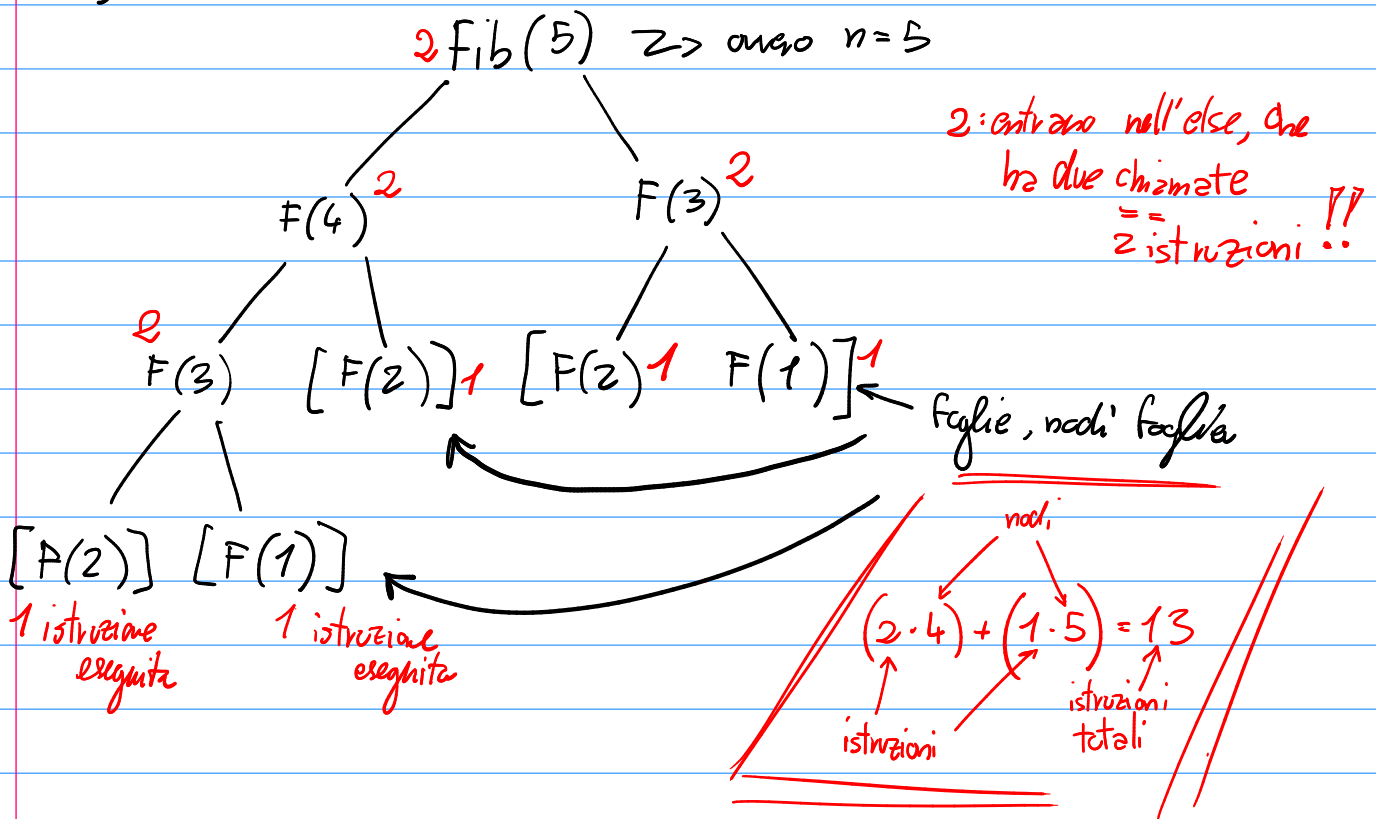 2 Fib(5) => ovvero n=5
2: entrano nell'else, che
ha due chiamate
==
2 istruzioni !!
F(4) 2
F(3) 2
2
F(3)
[F(2)] 1
[F(2) 1 F(1)] 1
foglie, nodi foglia
[F(2)] [F(1)]
1 istruzione
eseguita
1 istruzione
eseguita
nodi
(2·4)+(1·5)=13
istruzioni
istruzioni
totali